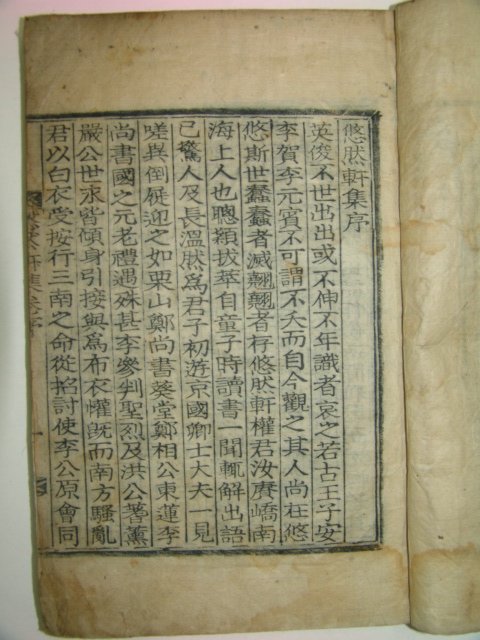 悠然軒集序
英俊不世出出或不伸不年識者哀之若古王子安
李賀李元賓不可謂不夭而自今觀之其人尚在悠
悠斯世蠢蠢者滅翹翹者存悠然軒權君汝賡嶠南
海上人也聰穎拔萃自童子時讀書一聞輒解出語
已驚人及長溫然爲君子初遊京國卿士大夫一見
嗟異倒屣迎之如栗山鄭尚書葵堂鄭相公東蓮李
尚書國之元老禮遇殊甚李參判聖烈及洪公著薰
嚴公世永皆傾身引接與爲布衣懽旣而南方騷亂
君以白衣受按行三南之命從招討使李公原會同
悠然軒集卷 序
一